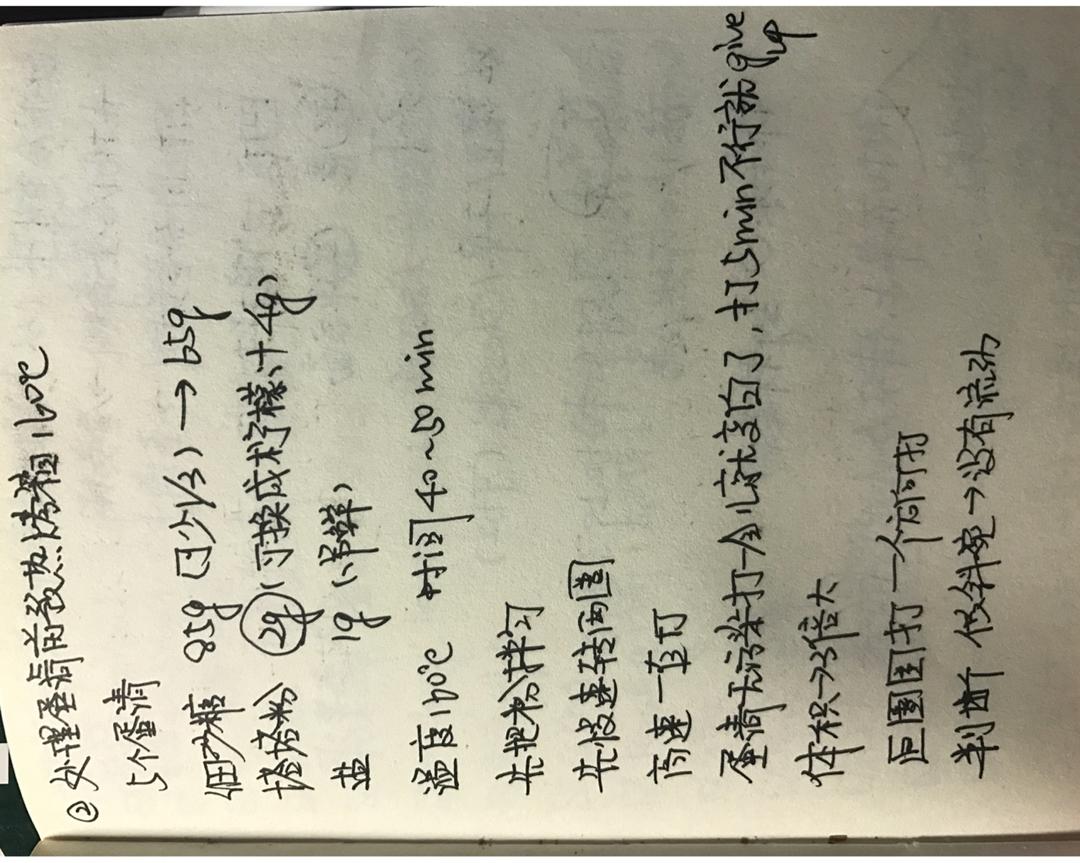 ② 处理蛋清前预热烤箱160℃
5个蛋清
细砂糖 85g (可少1/3) → 65g
塔塔粉 2g (可换成柠檬汁4g)
盐 1g (带鲜)
温度160℃ 时间40~50min
先把粉拌匀
先慢速转两圈
高速一直打
蛋清无污染打一会儿就变白了, 打5min不行就give up
体积→3倍大
画圈圈打 一个方向打
判断 倾斜碗→没有流动